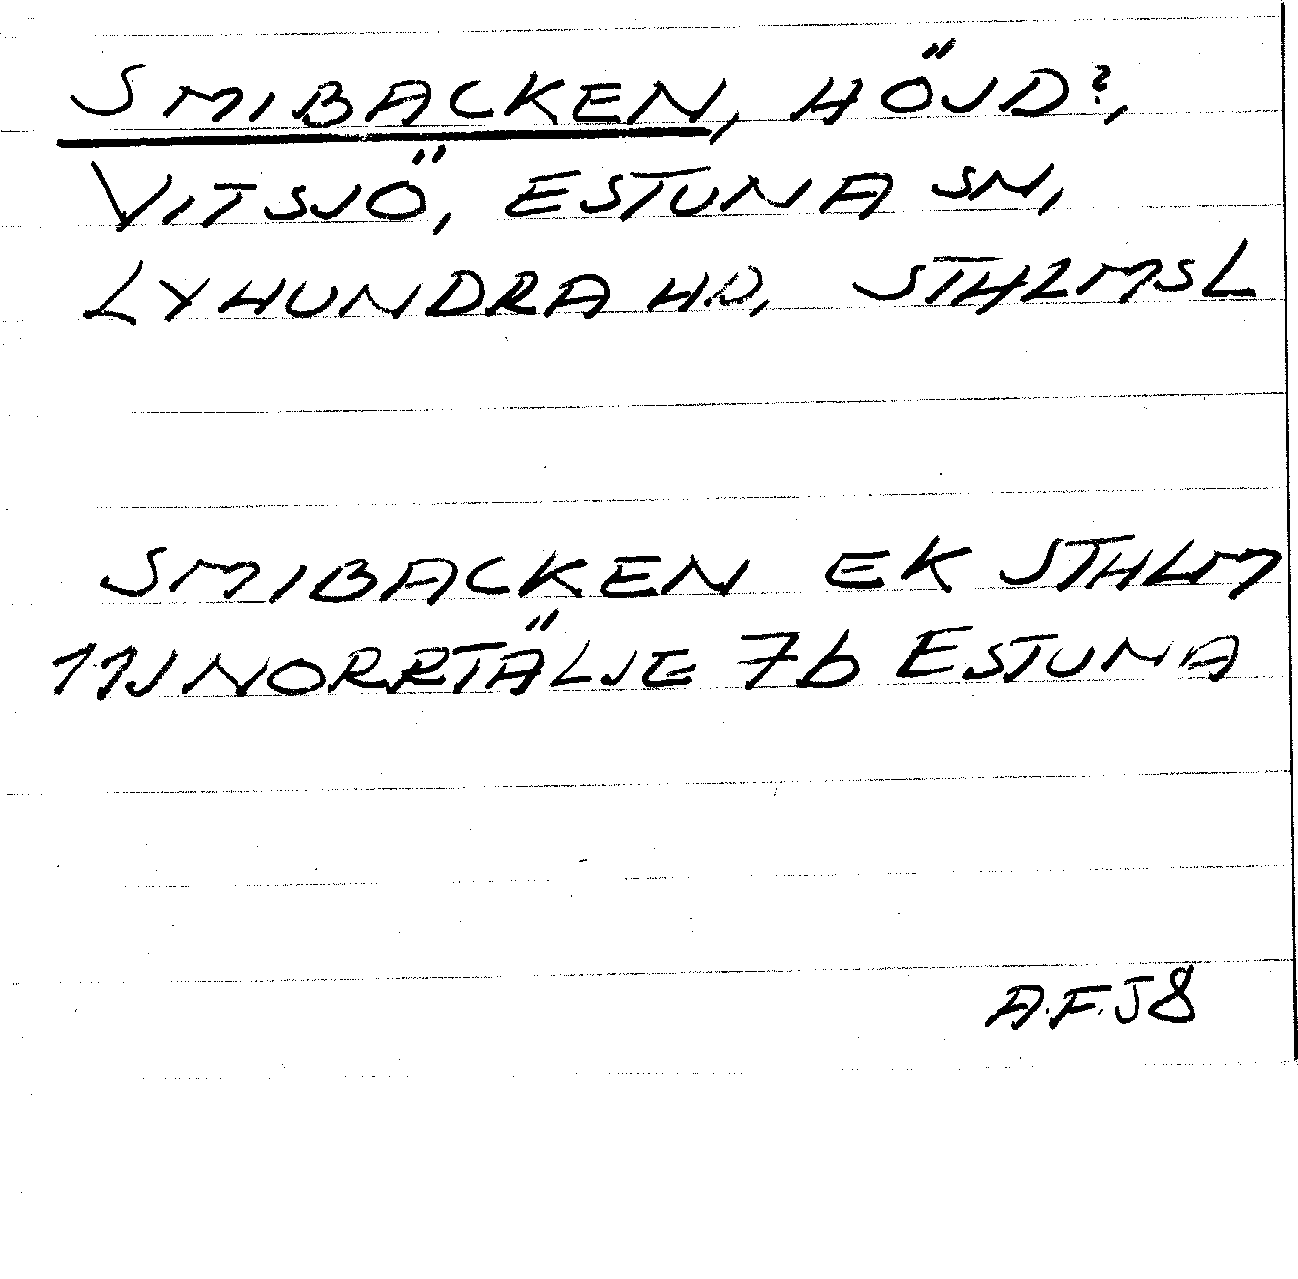 SMIBACKEN, HÖJD?,
VITSJÖ, ESTUNA SN,
LYHUNDRA HD, STHLMSL
SMIBACKEN EK STHLM
11J NORRTÄLJE 7b ESTUNA
A.F.J8